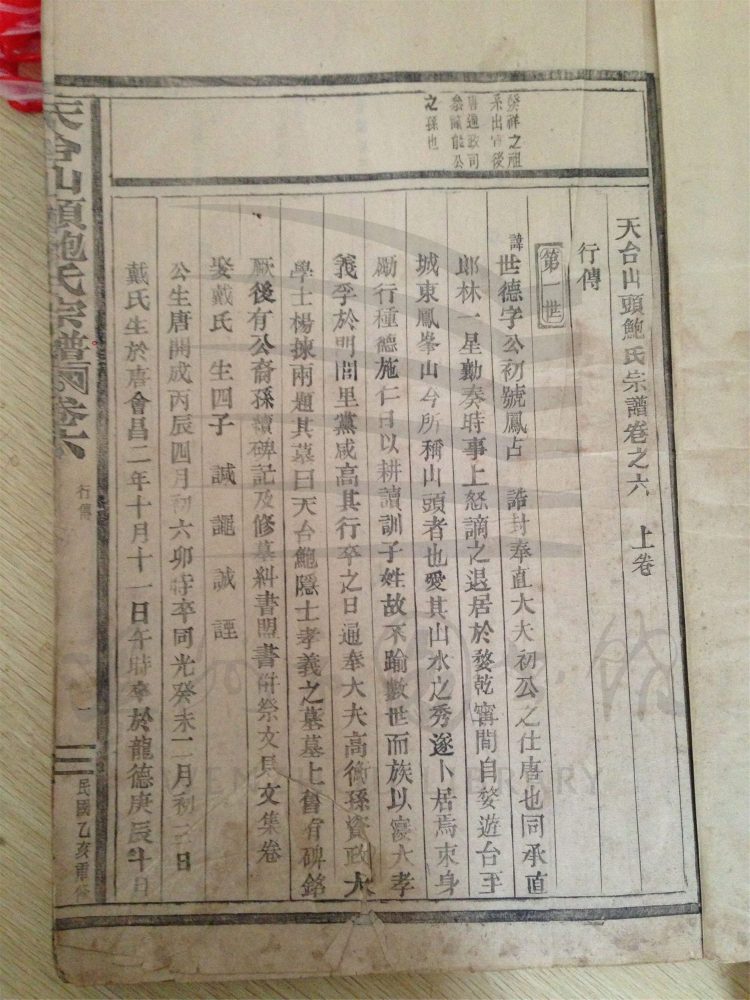 天台山頭鮑氏宗譜卷之六 上卷
行傳
發祥之祖
系出 後
唐通政司
公
之孫也
第一世
諱世德字公初號鳳占 誥封奉直大夫初公之仕唐也同承直
郎林一星勤奏時事上怒謫之退居於婺乾寗間自婺遊台至
城東鳳峯山今所稱山頭者也愛其山水之秀遂卜居焉束身
勵行種德施仁日以耕讀訓子姓故不踰數世而族以寖大孝
義孚於門閭里黨咸高其行卒之日通奉大夫高衡孫資政大
學士楊棟兩題其墓曰天台鮑隱士孝義之墓墓上舊有碑銘
厥後有公裔孫讀碑記及修墓糾書盟書併祭文具文集卷
娶戴氏 生四子 誠 誠 諲
公生唐開成丙辰四月初六卯時卒同光癸未二月初三日
戴氏生於唐會昌二年十月十一日午時卒於龍德庚辰十月
天台山頭鮑氏宗譜 卷六
行傳
一
民國乙亥重修